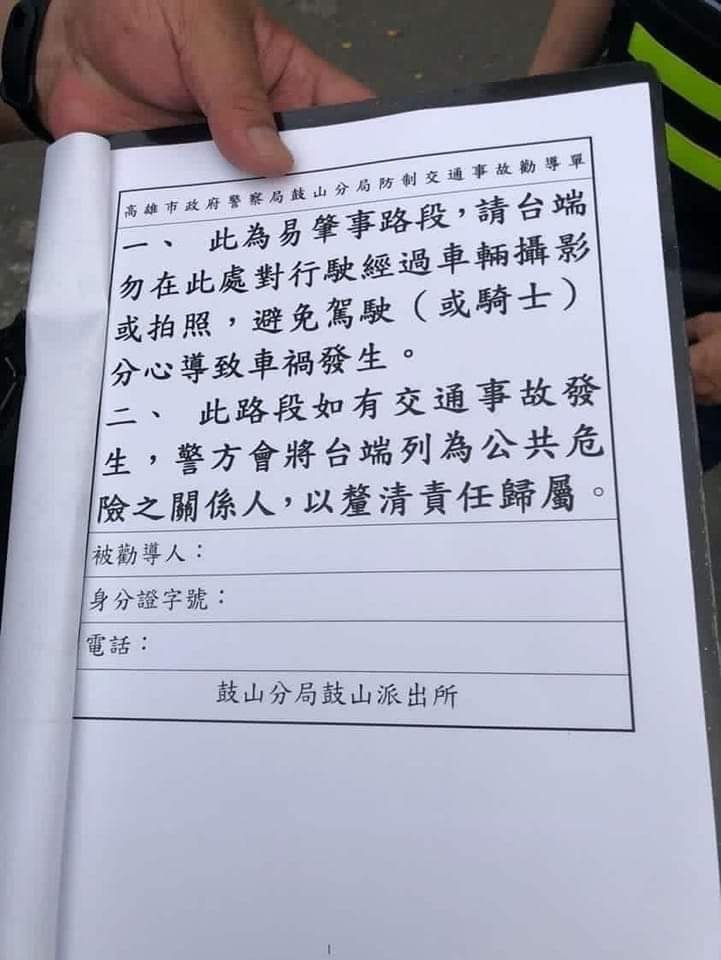 高雄市政府警察局鼓山分局防制交通事故勸導單
一、 此為易肇事路段，請台端
勿在此處對行駛經過車輛攝影
或拍照，避免駕駛（或騎士）
分心導致車禍發生。
二、 此路段如有交通事故發
生，警方會將台端列為公共危
險之關係人，以釐清責任歸屬。
被勸導人：
身分證字號：
電話：
鼓山分局鼓山派出所
1